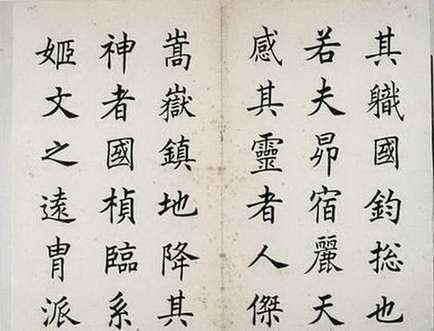 其職國鈞揔也
若夫昴宿麗天
感其靈者人傑
嵩嶽鎮地降其
神者國楨臨系
姬文之遠冑派